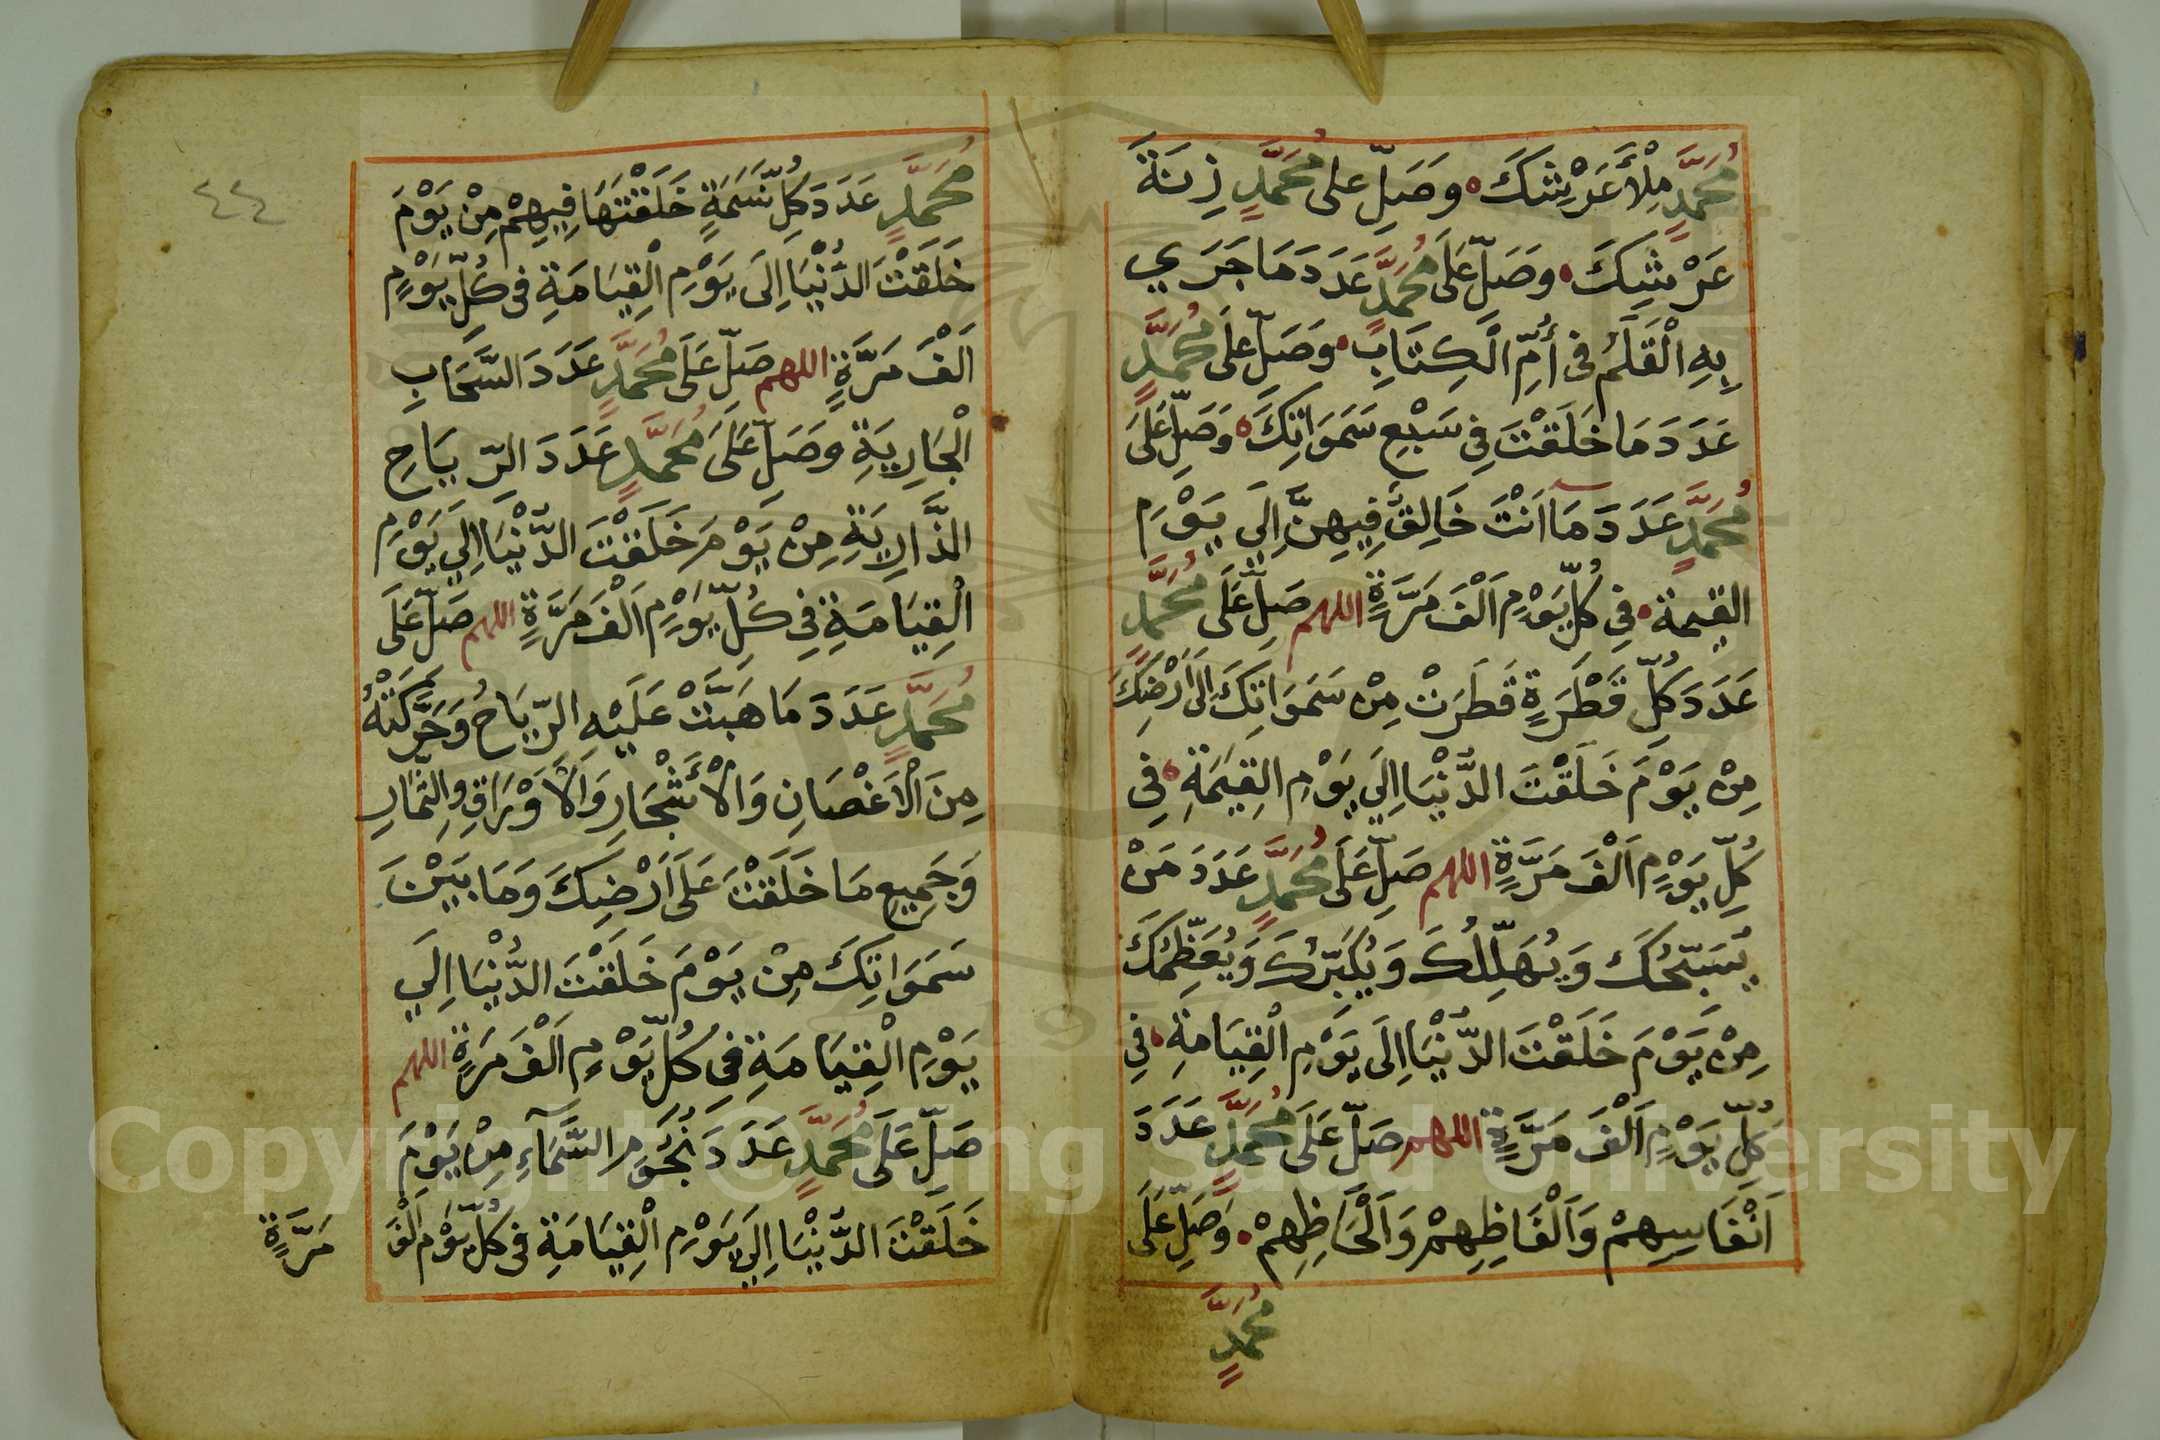 مُحَمَّدٍ مِلْأَ عَرْشِكَ وَصَلِّ عَلى مُحَمَّدٍ زِنَةَ
عَرْشِكَ وَصَلِّ عَلَى مُحَمَّدٍ عَدَدَ مَا جَرَي
بِهِ الْقَلَمُ فى أُمِّ الْكِتَابِ وَصَلِّ عَلَى مُحَمَّدٍ
عَدَدَ مَا خَلَقْتَ فِي سَبْعِ سَمَوَاتِكَ وَصَلِّ عَلَى
مُحَمَّدٍ عَدَدَ مَا اَنْتَ خَالِقٌ فِيهِنَّ اِلَي يَوْمِ
القيمة فِي كُلِّ يَوْمٍ اَلْفَ مَرَّةٍ اللهم صَلِّ عَلَى مُحَمَّدٍ
عَدَدَ كُلِّ قَطْرَةٍ قَطَرَتْ مِنْ سَمَوَاتِكَ اِلَى اَرْضِكَ
مِنْ يَوْمَ خَلَقْتَ الدُّنْيَا اِلَي يَوْمِ الْقِيَمَةِ فِي
كُلِّ يَوْمٍ اَلْفَ مَرَّةٍ اللهم صَلِّ عَلَى مُحَمَّدٍ عَدَدَ مَنْ
يُسَبِّحُكَ وَيُهَلِّلُكَ وَيُكَبِّرُكَ وَيُعَظِّمُكَ
مِنْ يَوْمَ خَلَقْتَ الدُّنْيَا اِلَى يَوْمِ الْقِيَامَةِ فِي
كُلِّ يَوْمٍ اَلْفَ مَرَّةٍ اللهم صَلِّ عَلَى مُحَمَّدٍ عَدَدَ
اَنْفَاسِهِمْ وَاَلْفَاظِهِمْ وَاَلْحَاظِهِمْ وَصَلِّ عَلَى
مُحَمَّدٍ
٤٤
مُحَمَّدٍ عَدَدَ كُلِّ نَسَمَةٍ خَلَقْتَهَا فِيهِمْ مِنْ يَوْمَ
خَلَقْتَ الدُّنْيَا اِلَى يَوْمِ الْقِيَامَةِ فى كُلِّ يَوْمٍ
اَلْفَ مَرَّةٍ اللهم صَلِّ عَلَى مُحَمَّدٍ عَدَدَ السَّحَابِ
الْجَارِيَةِ وَصَلِّ عَلَى مُحَمَّدٍ عَدَدَ الرِّيَاحِ
الذَّارِيَةِ مِنْ يَوْمَ خَلَقْتَ الدُّنْيَا اِلَي يَوْمِ
الْقِيَامَةِ فِي كُلِّ يَوْمٍ اَلْفَ مَرَّةٍ اللهم صَلِّ عَلَى
مُحَمَّدٍ عَدَدَ مَا هَبَّتْ عَلَيْهِ الرِّيَاحُ وَحَرَّكَتْهُ
مِنَ الْاَغْصَانِ وَالْاَشْجَارِ وَالْاَوْرَاقِ وَالثِّمَارِ
وَجَمِيعِ مَا خَلَقْتَ عَلَى اَرْضِكَ وَمَا بَيْنَ
سَمَوَاتِكَ مِنْ يَوْمَ خَلَقْتَ الدُّنْيَا اِلَي
يَوْمِ الْقِيَامَةِ فِي كُلِّ يَوْمٍ اَلْفَ مَرَةٍ اللهم
صَلِّ عَلَى مُحَمَّدٍ عَدَدَ نُجُومِ السَّمَآءِ مِنْ يَوْمَ
خَلَقْتَ الدُّنْيَا اِلَي يَوْمِ الْقِيَامَةِ فى كُلِّ يَوْمٍ اَلْفَ
مَرَّةٍ
Copyright © King Saud University